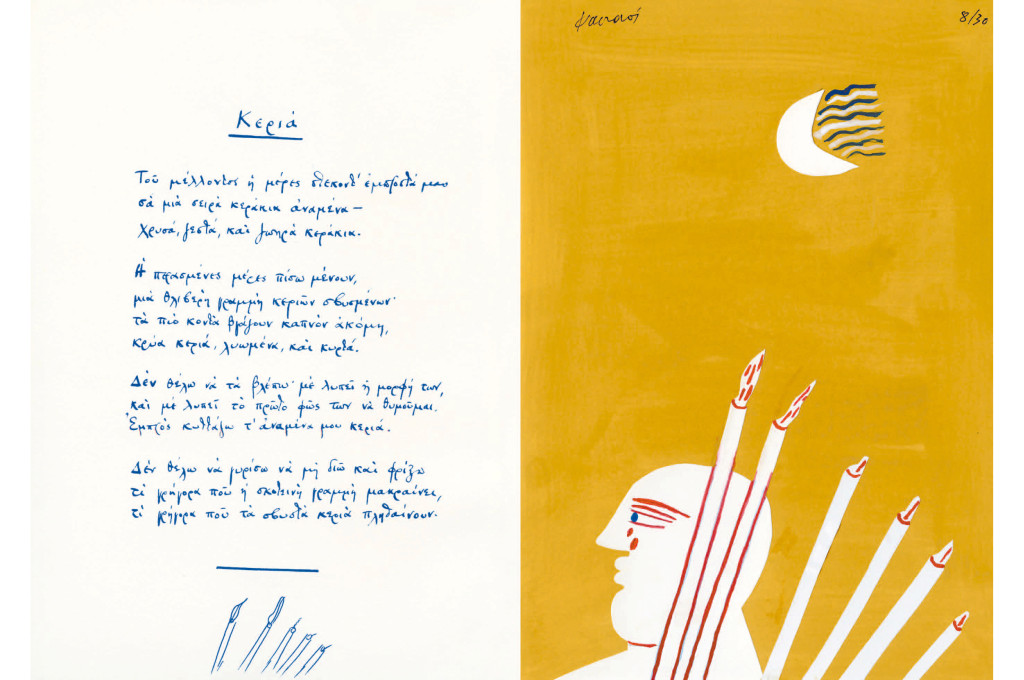 Κεριά
Τοῦ μέλλοντος ἡ μέρες στέκοντ’ ἐμπροστά μας
σὰ μιὰ σειρὰ κεράκια ἀναμένα —
χρυσά, ζεστά, καὶ ζωηρὰ κεράκια.
Ἡ περασμένες μέρες πίσω μένουν,
μιὰ θλιβερὴ γραμμὴ κεριῶν σβυσμένων·
τὰ πιὸ κοντὰ βγάζουν καπνὸν ἀκόμη,
κρύα κεριά, λυωμένα, καὶ κυρτά.
Δὲν θέλω νὰ τὰ βλέπω· μὲ λυπεῖ ἡ μορφή των,
καὶ μὲ λυπεῖ τὸ πρῶτο φῶς των νὰ θυμοῦμαι.
Ἐμπρὸς κυττάζω τ’ ἀναμένα μου κεριά.
Δὲν θέλω νὰ γυρίσω νὰ μὴ διῶ καὶ φρίξω
τί γρήγορα ποῦ ἡ σκοτεινὴ γραμμὴ μακραίνει,
τί γρήγορα ποῦ τὰ σβυστὰ κεριὰ πληθαίνουν.
8/30